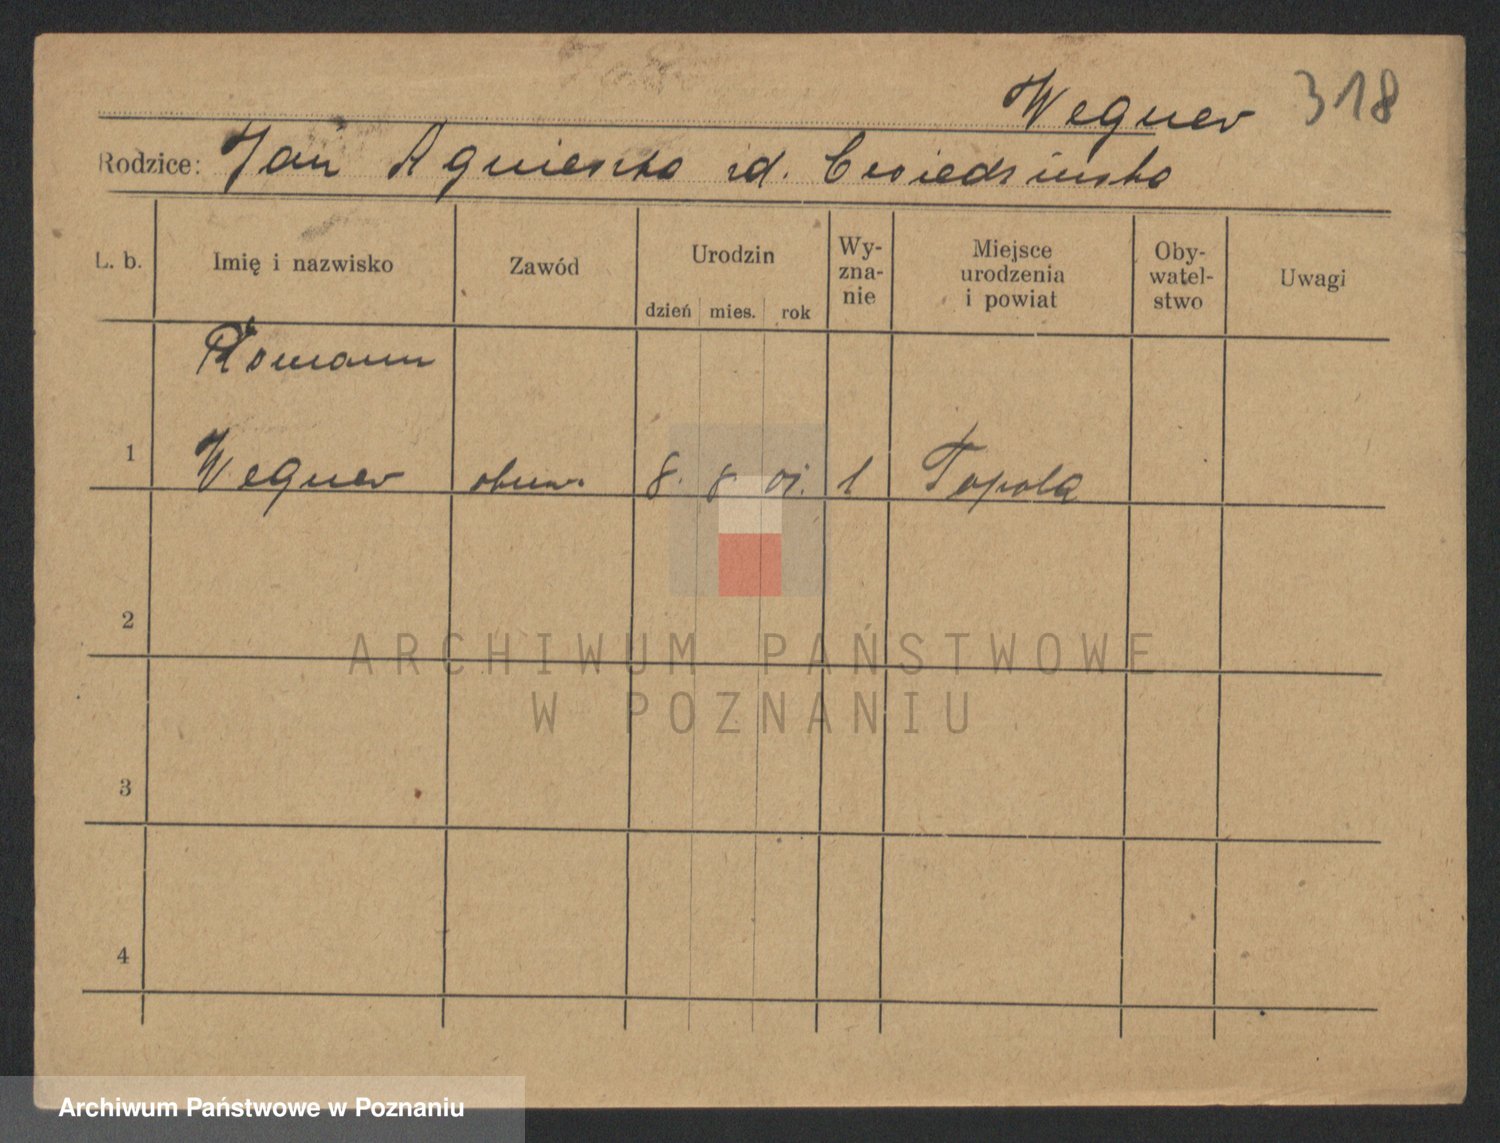 Wegner 318
Rodzice: Jan Agnieszka zd.
L. b. Imię i nazwisko Zawód Urodzin dzień mies. rok Wy-zna-nie Miejsce urodzenia i powiat Oby-watel-stwo Uwagi
Roman
1 Wegner 8. 8. 01. Topola
2
ARCHIWUM PAŃSTWOWE
W POZNANIU
3
4
Archiwum Państwowe w Poznaniu